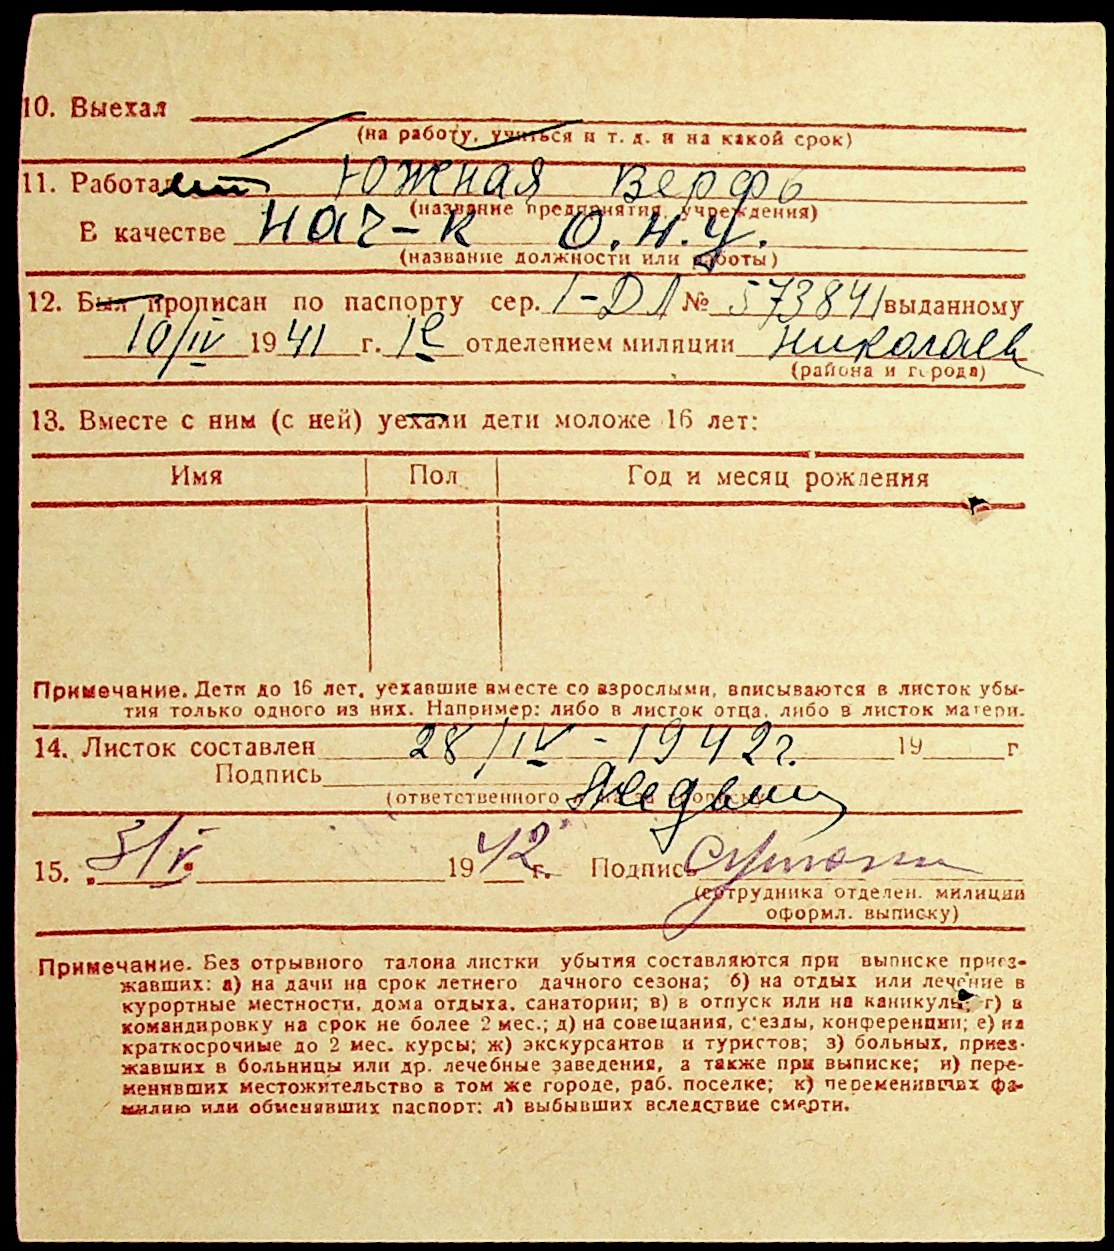 10. Выехал
(на работу, учиться и т. д. и на какой срок)
11. Работает Южная Верфь
(название предприятия, учреждения)
В качестве нач-к О.Н.У.
(название должности или работы)
12. Был прописан по паспорту сер. I-ДЛ № 573841 выданному
10/IV 1941 г. 1е отделением милиции Николаев
(района и города)
13. Вместе с ним (с ней) уехали дети моложе 16 лет:
Имя Пол Год и месяц рождения
Примечание. Дети до 16 лет, уехавшие вместе со взрослыми, вписываются в листок убы-
тия только одного из них. Например: либо в листок отца, либо в листок матери.
14. Листок составлен 28/IV - 1942г. 19 г
Подпись
(ответственного лица за прописку)
15. 5/V 1942 г. Подпись
(сотрудника отделен. милиции
оформл. выписку)
Примечание. Без отрывного талона листки убытия составляются при выписке приез-
жавших: а) на дачи на срок летнего дачного сезона; б) на отдых или лечение в
курортные местности, дома отдыха, санатории; в) в отпуск или на каникулы; г) в
командировку на срок не более 2 мес.; д) на совещания, с'езды, конференции; е) на
краткосрочные до 2 мес. курсы; ж) экскурсантов и туристов; з) больных, приез-
жавших в больницы или др. лечебные заведения, а также при выписке; и) пере-
менивших местожительство в том же городе, раб. поселке; к) переменивших фа-
милию или обменявших паспорт; л) выбывших вследствие смерти.